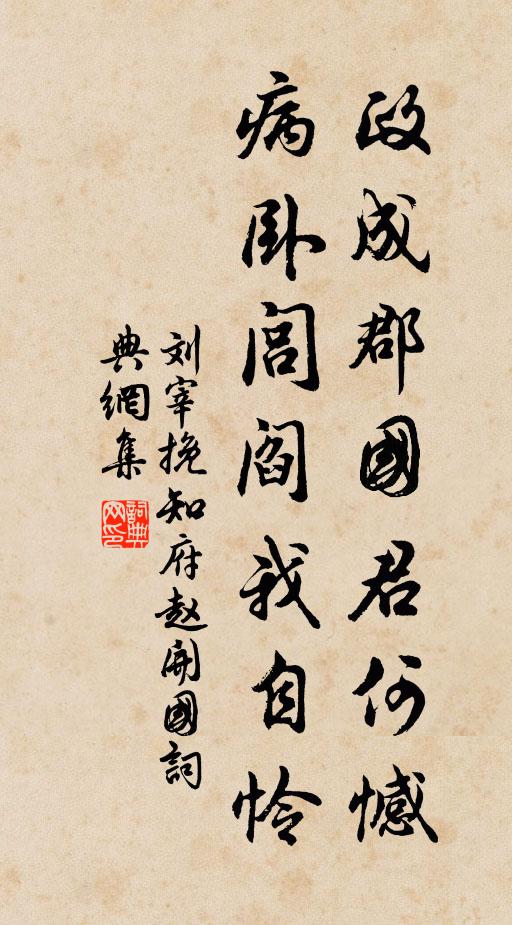 政成郡國君何憾
病卧閭閻我自怜
刘宰挽知府赵開國詞
典網集
詞典網印